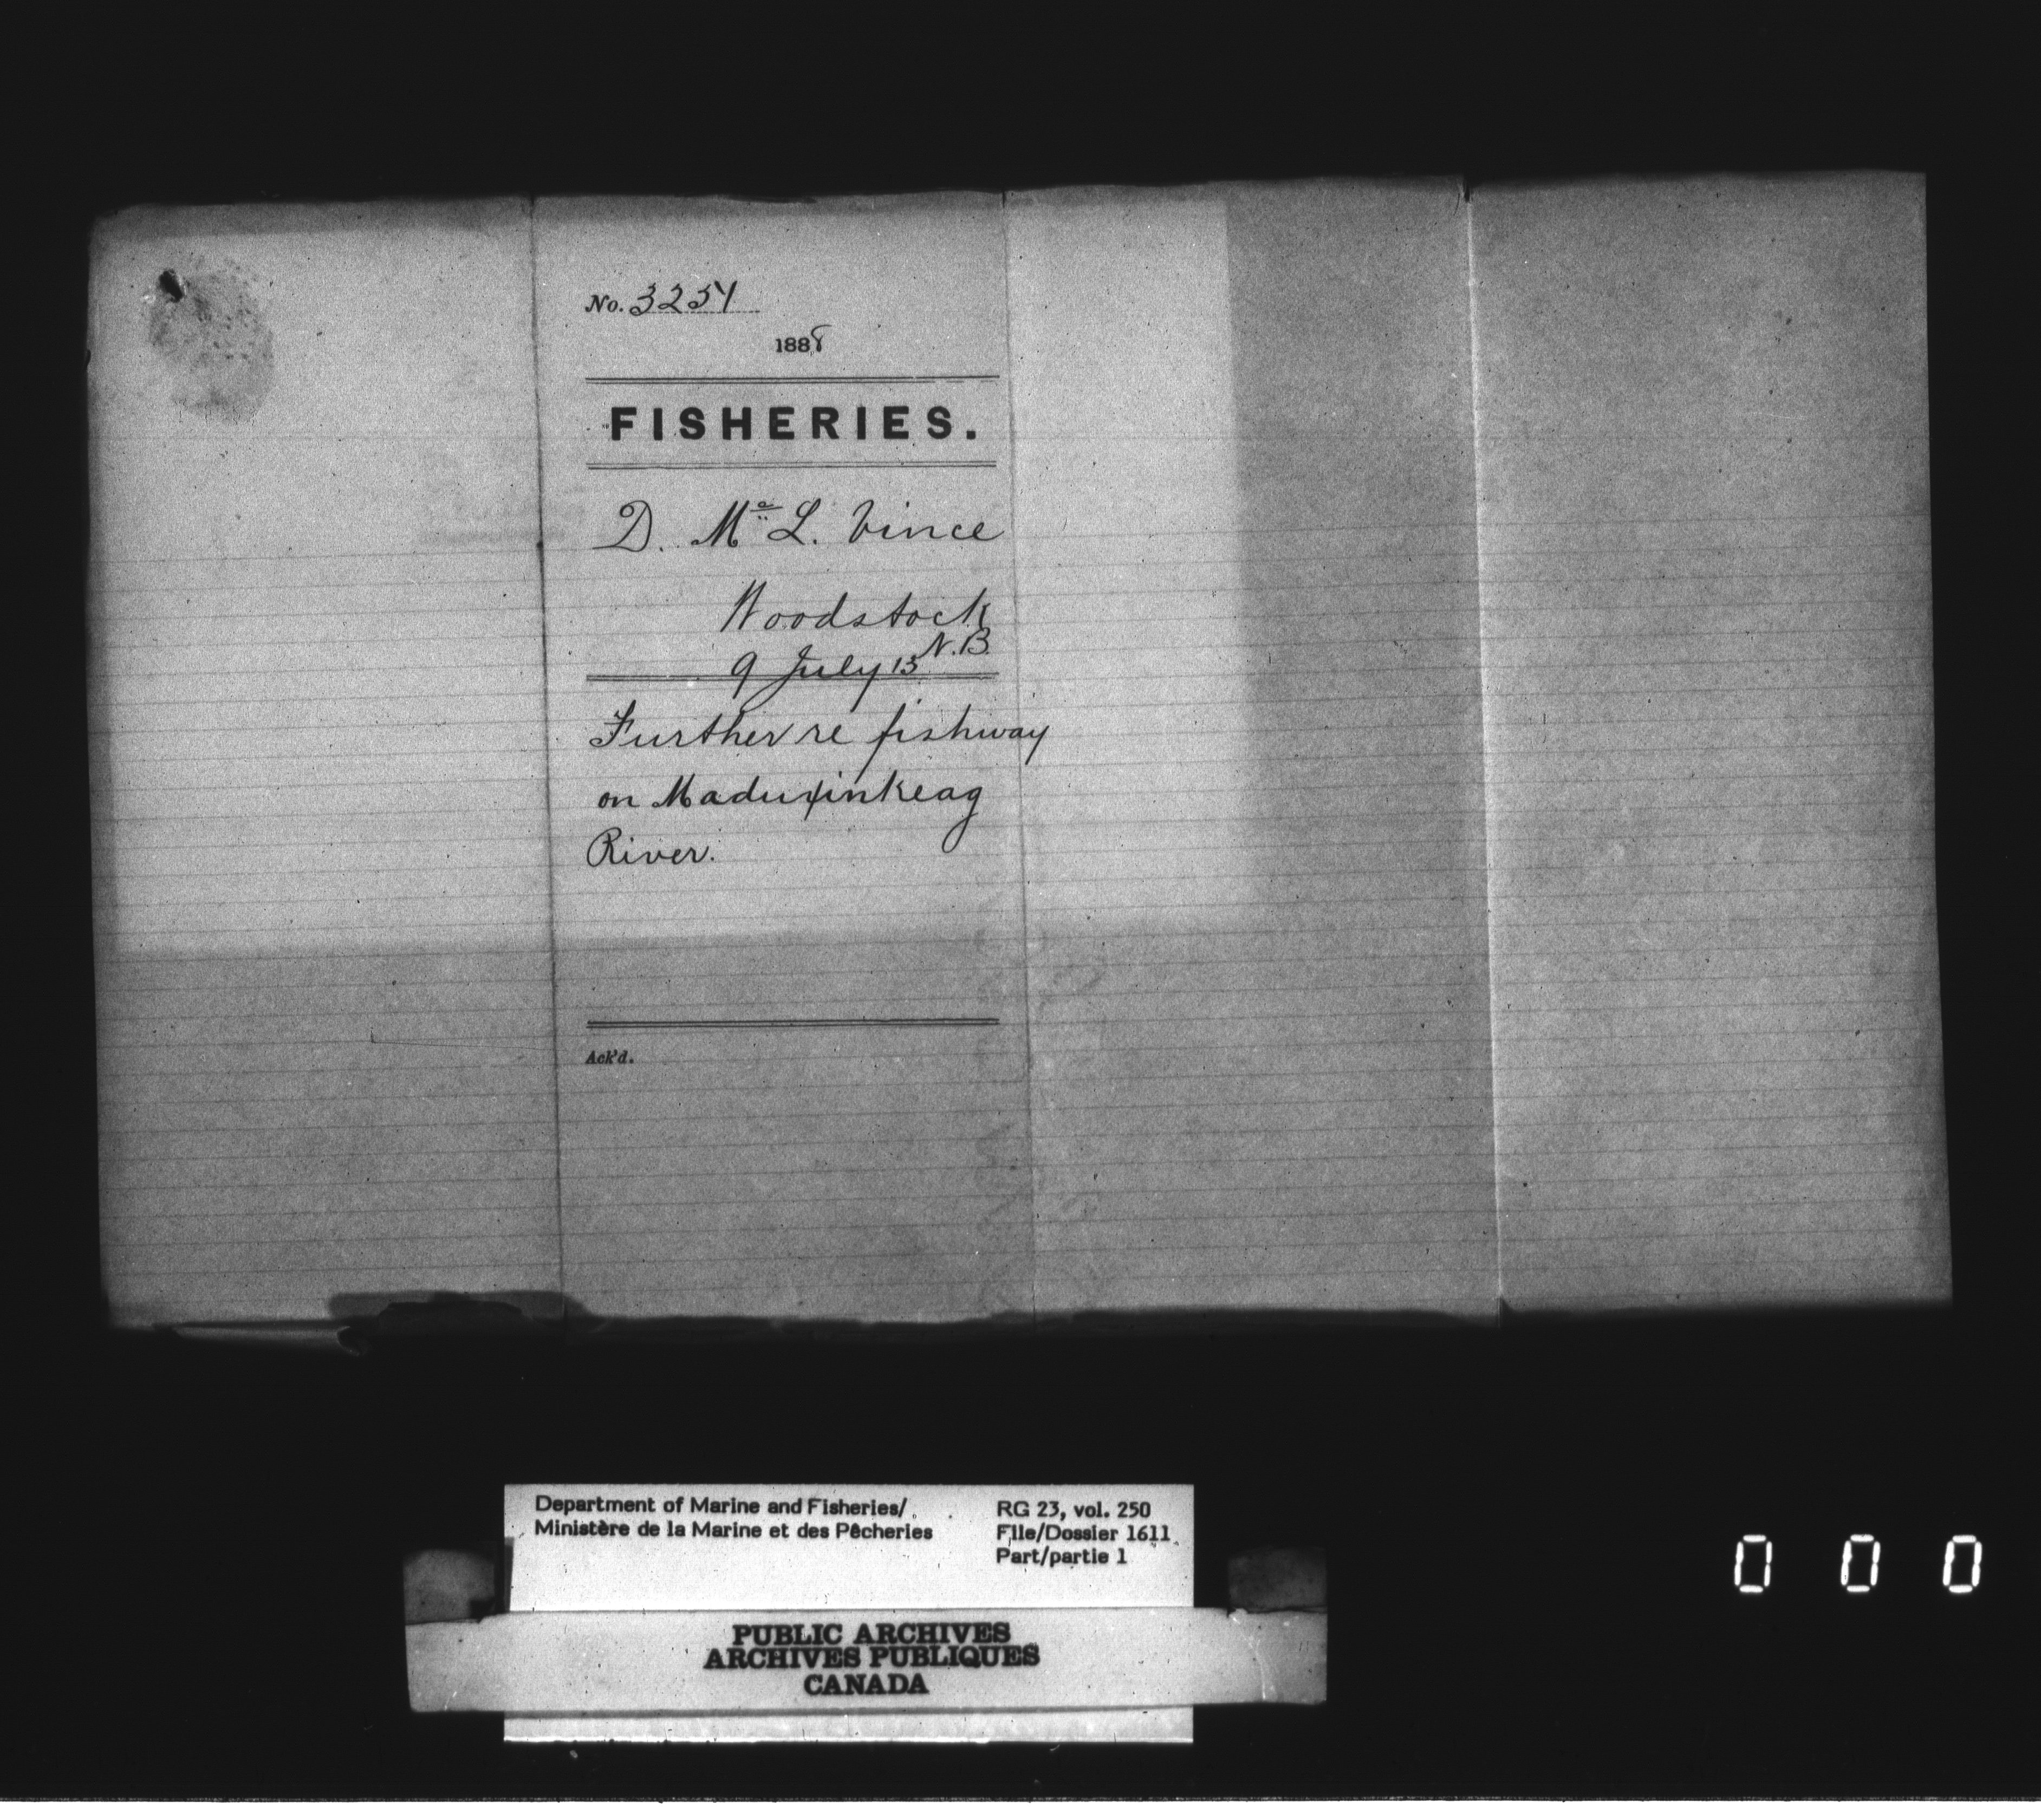 No. 3254
1888
FISHERIES.
D. Mc L. Vince
Woodstock
N.B.
9 July 13
Further re fishway
on Maduxinkeag
River.
Ack'd.
Department of Marine and Fisheries/
Ministère de la Marine et des Pêcheries
RG 23, vol. 250
File/Dossier 1611
Part/partie 1
PUBLIC ARCHIVES
ARCHIVES PUBLIQUES
CANADA
0 0 0